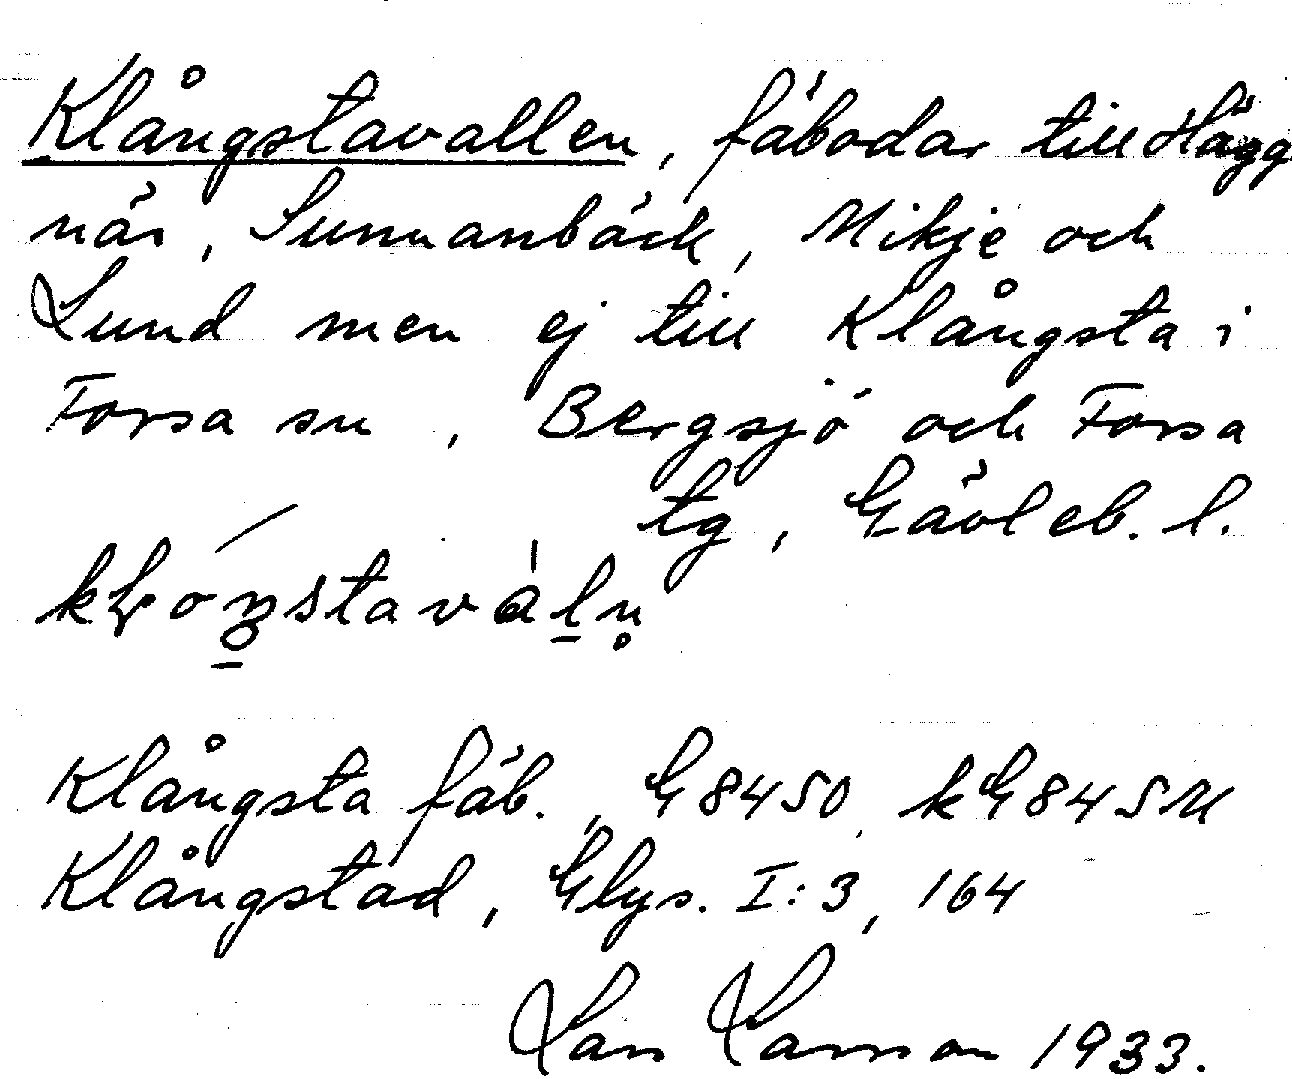 Klångstavallen, fäbodar till Hägg
när, Sunnanbäck, Mikje och
Lund men ej till Klångsta i
Forsa sn, Bergsjö och Forsa
tg, Gävleb. l.
Klångsta fäb., G 8450, kG 845M
Klångstad, Glys. I:3, 164
Lars Larsson 1933.